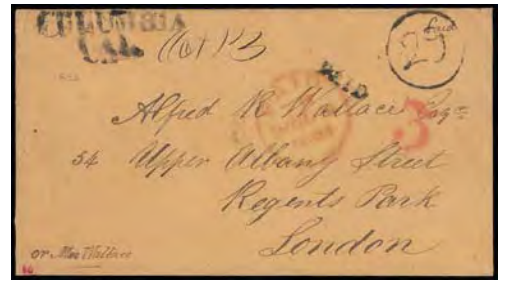 COLUMBIA
CAL.
Oct 13
Paid
29
PAID
PAID
3
Alfred R Wallace Esqre
54 Upper Albany Street
Regents Park
London
or Mrs Wallace